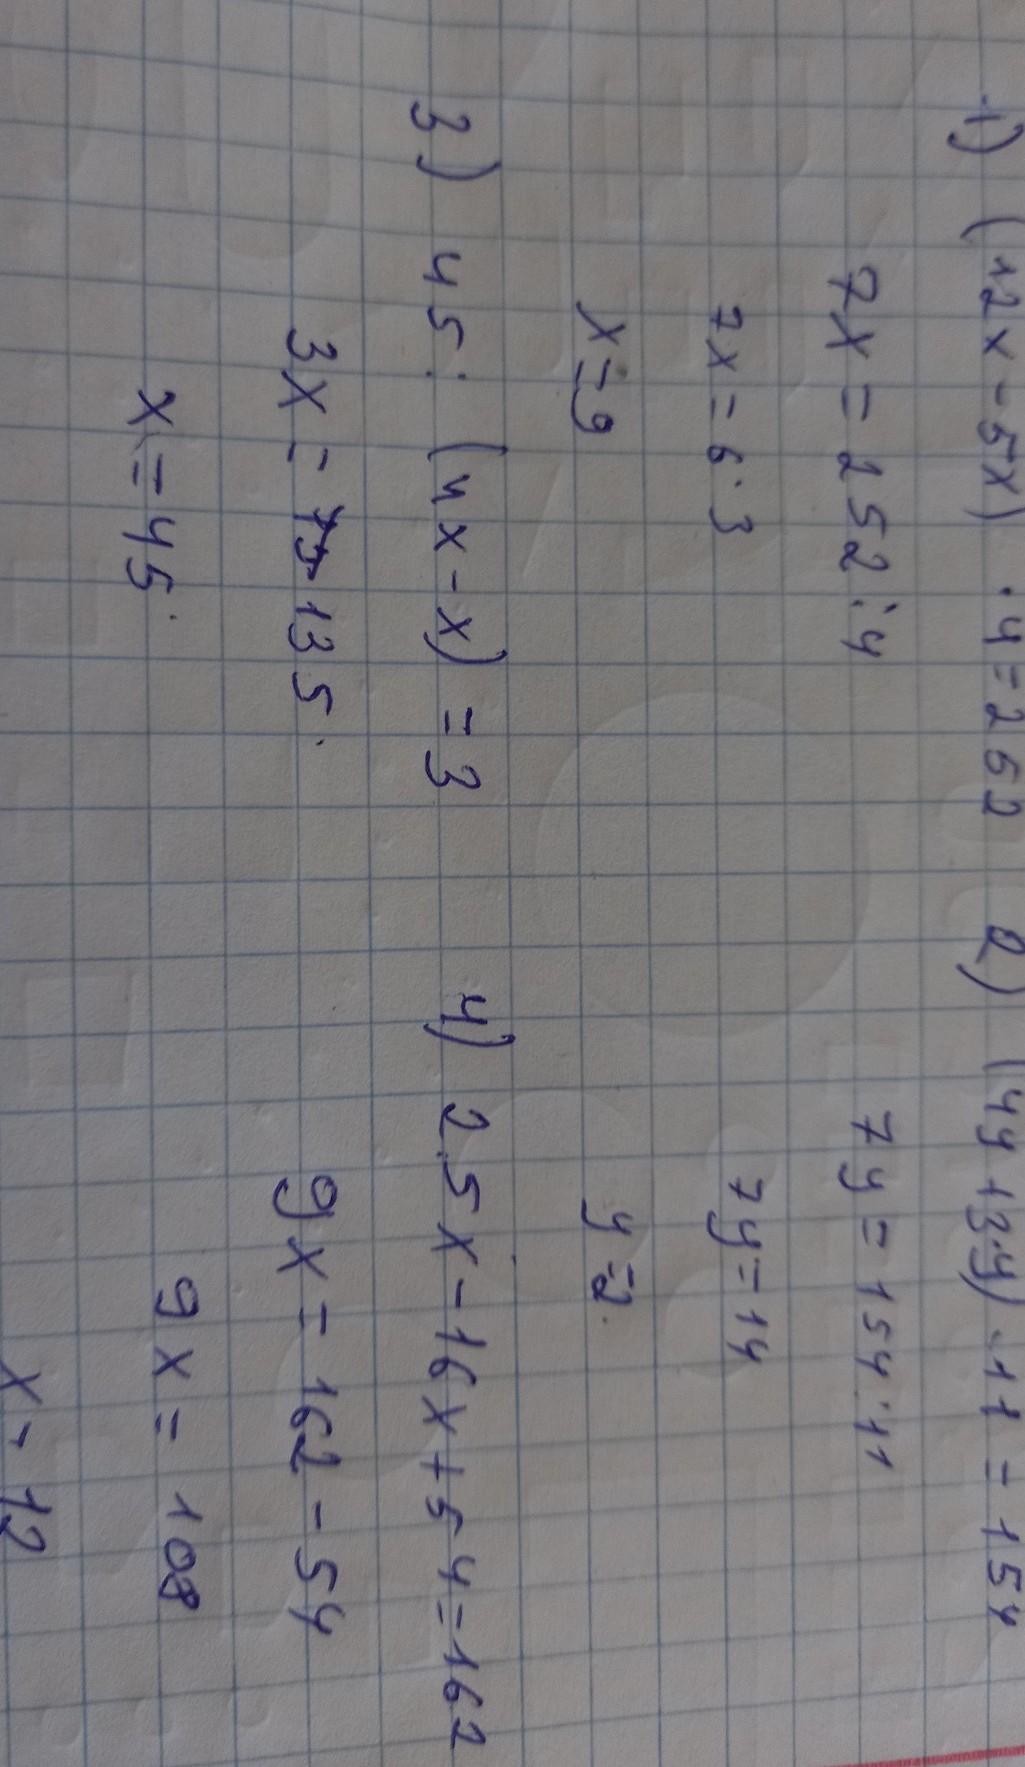 1) (12x - 5x) · 4 = 252
7x = 252 : 4
7x = 6·3
x = 9
2) (4y + 3·y) · 11 = 154
7y = 154 : 11
7y = 14
y = 2.
3) 45 : (4x - x) = 3
3x = 135.
x = 45.
4) 25x - 16x + 54 = 162
9x = 162 - 54
9x = 108
x = 12